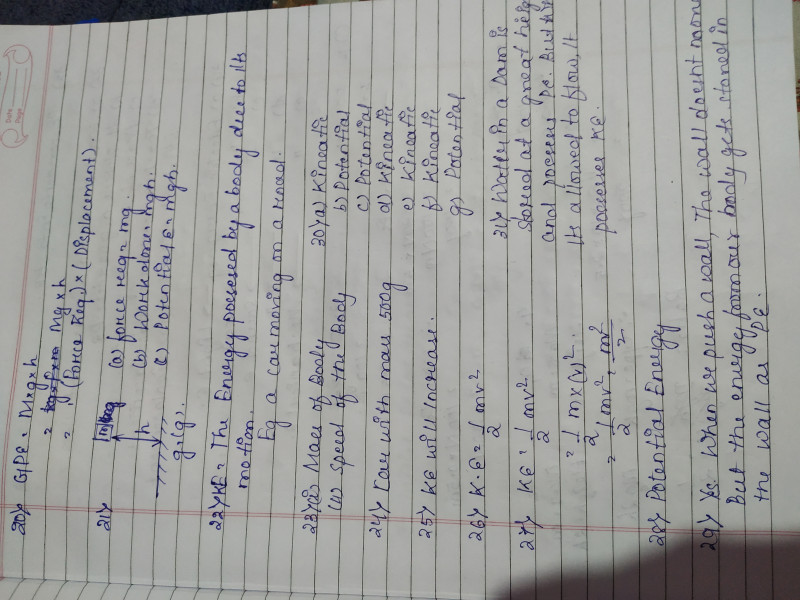 Date
Page
20) GPE = M×g×h
= Mg×h
= (Force Req.) × (Displacement).
21) m
h
g.(g).
(a) force req = mg.
(b) Work done = mgh.
(c) Potential E = mgh.
22) KE = The Energy possessed by a body due to its
motion.
Eg a car moving on a road.
23) (i) Mass of Body
(ii) Speed of the Body
24) Car with mass 500g
25) KE will increase.
26) K.E = 1/2 mv²
27) KE = 1/2 mv².
= 1/2 m×(v)².
= 1/2 mv² = mv²/2
28) Potential Energy
29) Ys. When we push a wall, The wall doesnt move
But the energy from our body gets stored in
the wall as PE.
30) a) Kineatic
b) Potential
c) Potential
d) Kineatic
e) Kineatic
f) Kineatic
g) Potential
31) Water in a Dam is
stored at a great heig
and possess PE. But
its allowed to flow, It
possesse KE.